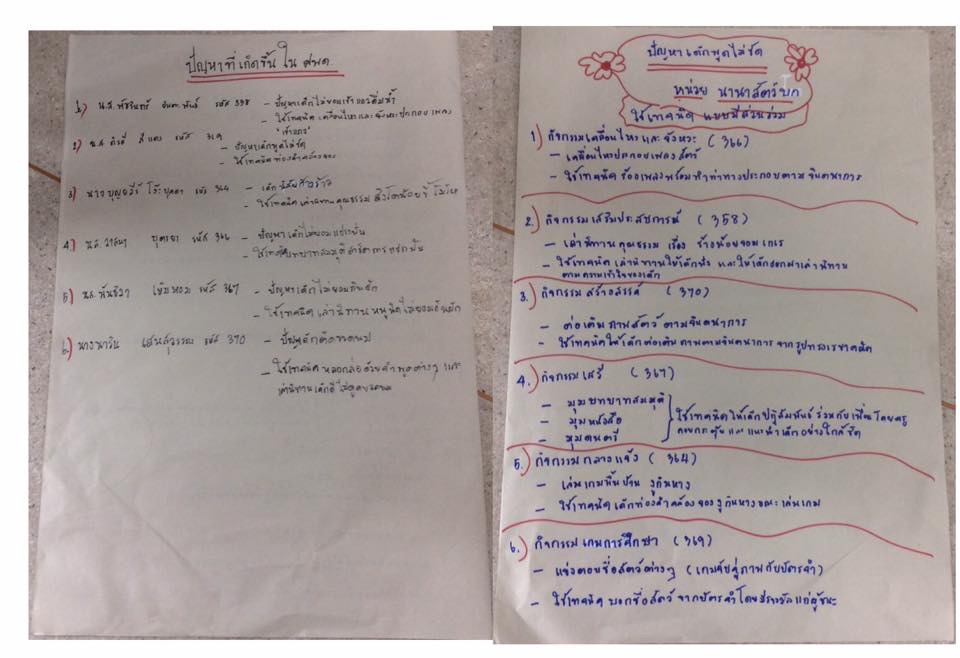 ปัญหาที่เกิดขึ้น ใน ศพด.
1) น.ส. พัชรินทร์ รหัส 358 - ปัญหาเด็กไม่ยอมเข้าแถวดื่มน้ำ
- ใช้เทคนิค เคลื่อนไหวและจังหวะประกอบ เพลง
"เข้าแถว"
2) น.ส. สีแดง รหัส 369 - ปัญหาเด็กพูดไม่ชัด
- ใช้เทคนิค ท่องคำคล้องจอง
3) นาง บุญอลีย์ รหัส 364 - เด็กมีนิสัยก้าวร้าว
- ใช้เทคนิค เล่านิทาน คุณธรรม
4) น.ส. วาสนา บุตรยา รหัส 366 - ปัญหาเด็กไม่ยอมแบ่งปัน
- ใช้เทคนิคบทบาทสมมุติสาธิตการแบ่งปัน
5) น.ส. พันธิวา เข็มหอม รหัส 367 - ปัญหาเด็กไม่ยอมกินผัก
- ใช้เทคนิค เล่านิทาน หนูนิดไม่ยอมกินผัก
6) นาง แสนสุวรรณ รหัส 370 - ปัญหาเด็กติดขวดนม
- ใช้เทคนิค หลอกล่อด้วยคำพูดต่างๆ และ
เล่านิทานเด็กดีไม่ดูดขวดนม
ปัญหาเด็กพูดไม่ชัด
หน่วย นานาสัตว์บก
ใช้เทคนิค แบบมีส่วนร่วม
1) กิจกรรมเคลื่อนไหวและจังหวะ (366)
- เคลื่อนไหวประกอบเพลงสัตว์
- ใช้เทคนิค ร้องเพลงพร้อมทำท่าทางประกอบตามจินตนาการ
2.) กิจกรรมเสริมประสบการณ์ (358)
- เล่านิทานคุณธรรม เรื่อง ช้างน้อยจอมเกเร
- ใช้เทคนิค เล่านิทานให้เด็กฟัง และให้เด็กออกมาเล่านิทาน
ตามความเข้าใจของเด็ก
3.) กิจกรรมสร้างสรรค์ (370)
- ต่อเติมภาพสัตว์ตามจินตนาการ
- ใช้เทคนิคให้เด็กต่อเติมภาพตามจินตนาการ จากรูปทรงเรขาคณิต
4.) กิจกรรมเสรี (367)
- มุมบทบาทสมมุติ
- มุมหนังสือ
- มุมดนตรี
ใช้เทคนิคให้เด็กปฏิสัมพันธ์ร่วมกับเพื่อนโดยครู
คอยกระตุ้น และแนะนำเด็กอย่างใกล้ชิด
5.) กิจกรรมกลางแจ้ง (364)
- เล่นเกมพื้นบ้าน งูกินหาง
- ใช้เทคนิค เด็กท่องคำคล้องจองงูกินหางขณะเล่นเกม
6.) กิจกรรมเกมการศึกษา (369)
- แข่งตอบชื่อสัตว์ต่างๆ (เกมจับคู่ภาพกับบัตรคำ)
- ใช้เทคนิค บอกชื่อสัตว์ จากบัตรคำโดยมีรางวัลแก่ผู้ชนะ